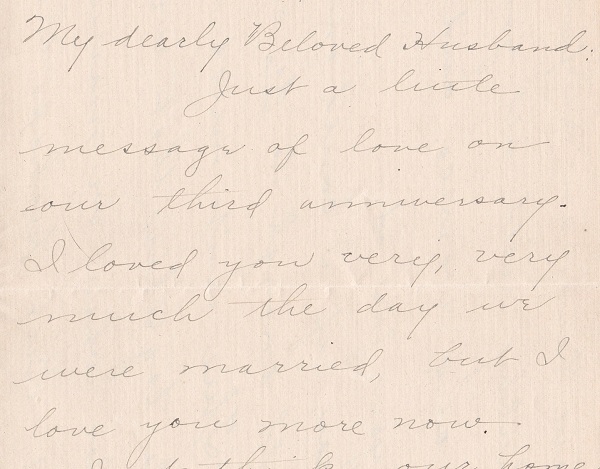 My dearly Beloved Husband:
Just a little
message of love on
our third anniversary.
I loved you very, very
much the day we
were married, but I
love you more now.
I think our home